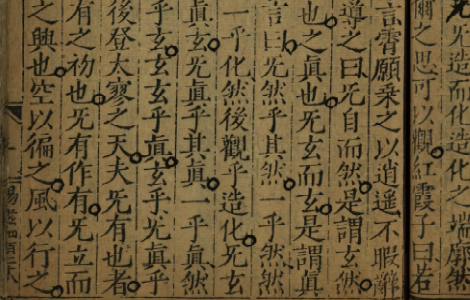 旡造而化造化之端廓然
爾之思可以觀紅霞子曰若
言霄願乘之以逍遙不暇難
導之曰旡自而然是謂玄然
也之眞也旡玄而玄是謂眞
言曰旡然乎其然一乎然然
一乎化然後觀乎造化旡玄
眞玄旡眞乎其眞一乎眞然
乎玄玄玄乎眞玄乎旡眞乎
後登太寥之天夫旡有也者
有之初也旡有作有旡立而
之興也空以徧之風以行之